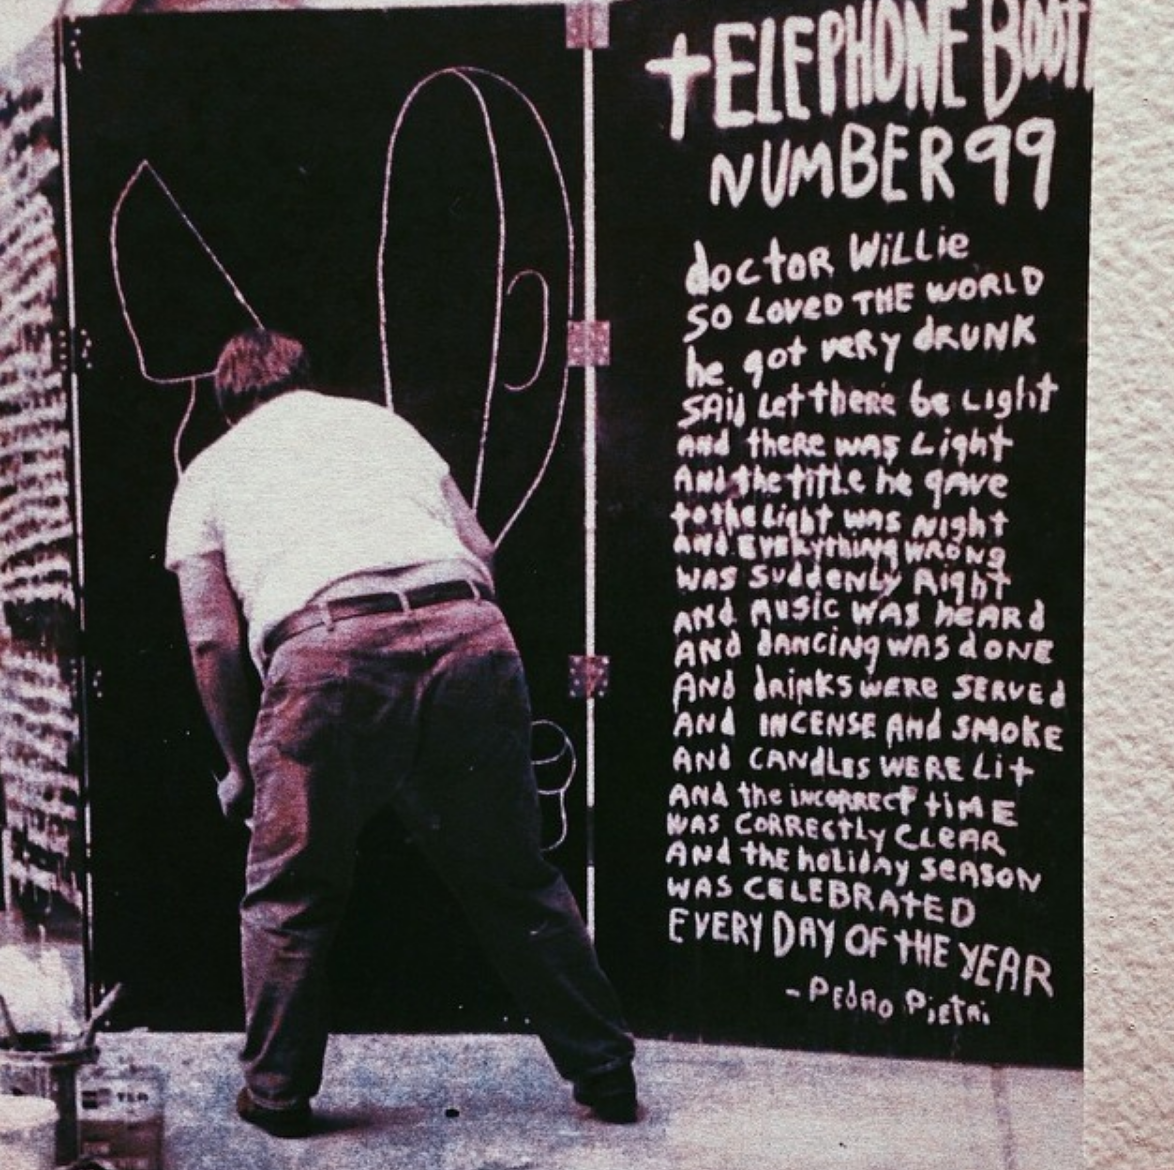 tELEPHONE BOOTH
NUMBER 99
doctoR WiLLie
SO LOVED THE WORLD
he got veRy dRUNK
SAid Let theRe be Light
And theRe was Light
And the titLe he gave
to the Light was Night
And EveRything WRONg
was SuddenLy Right
And music was heARd
AND dANCING WAS dONE
AND dRiNKS weRe SERVEd
AND INCENSE And SMOKE
AND CANdLES WERE Lit
AND the iNCORRECT tiME
WAS CORRECtLy CLEAR
AND the hoLiday SEASON
WAS CELEBRAtED
EVERY DAY OF tHE YEAR
- PEdRO PiEtRi
TEA